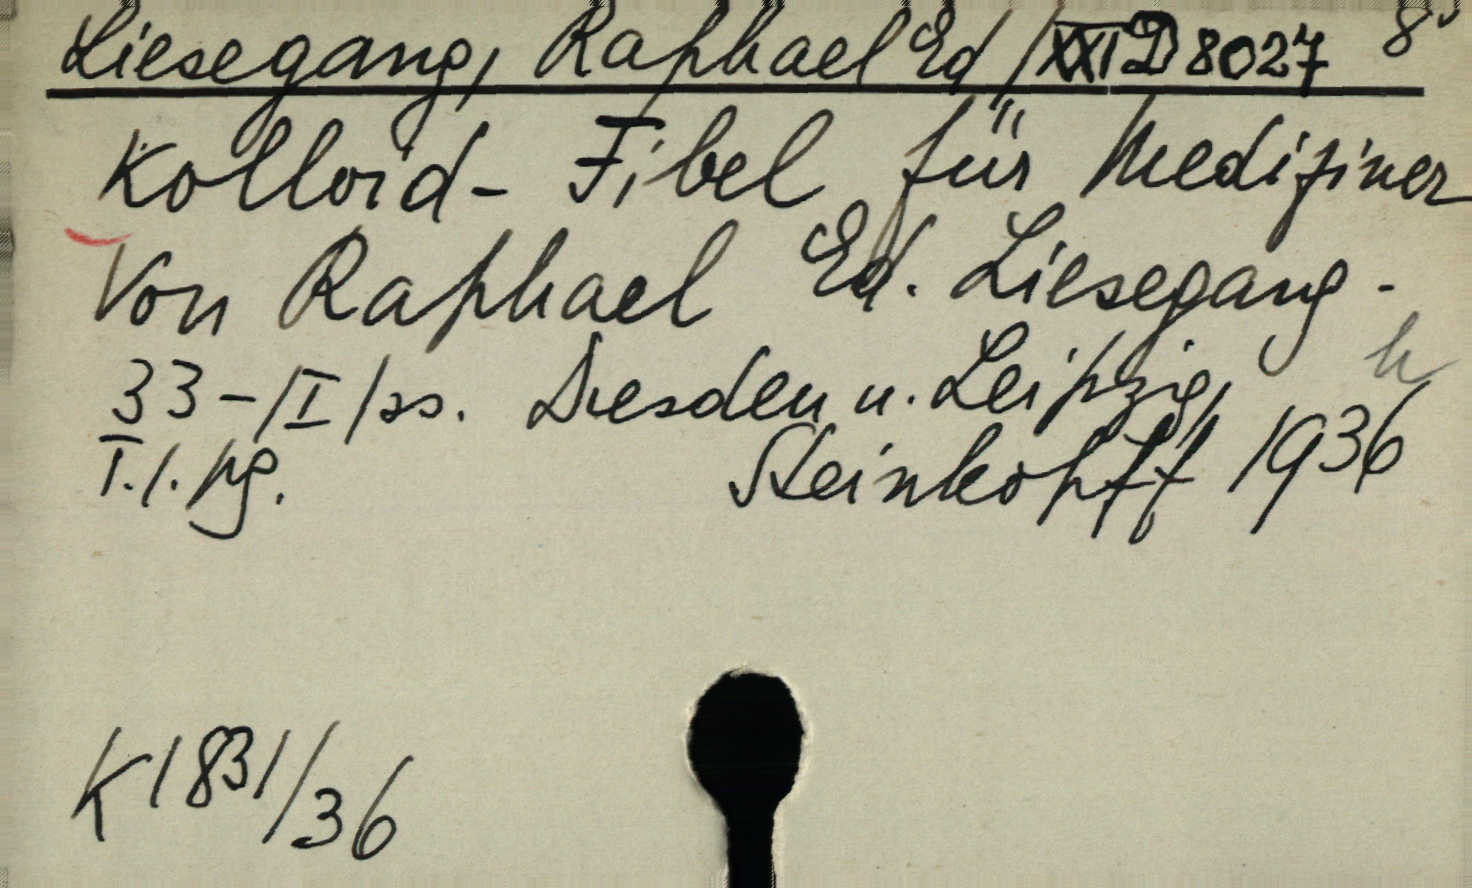 Liesegang, Raphael Ed / XXI D 8027 8°
Kolloid-Fibel für Mediziner
Von Raphael Ed. Liesegang.-
33-/I/ss. Dresden u. Leipzig,
T.l. pg. Steinkopff 1936
K 1831/36